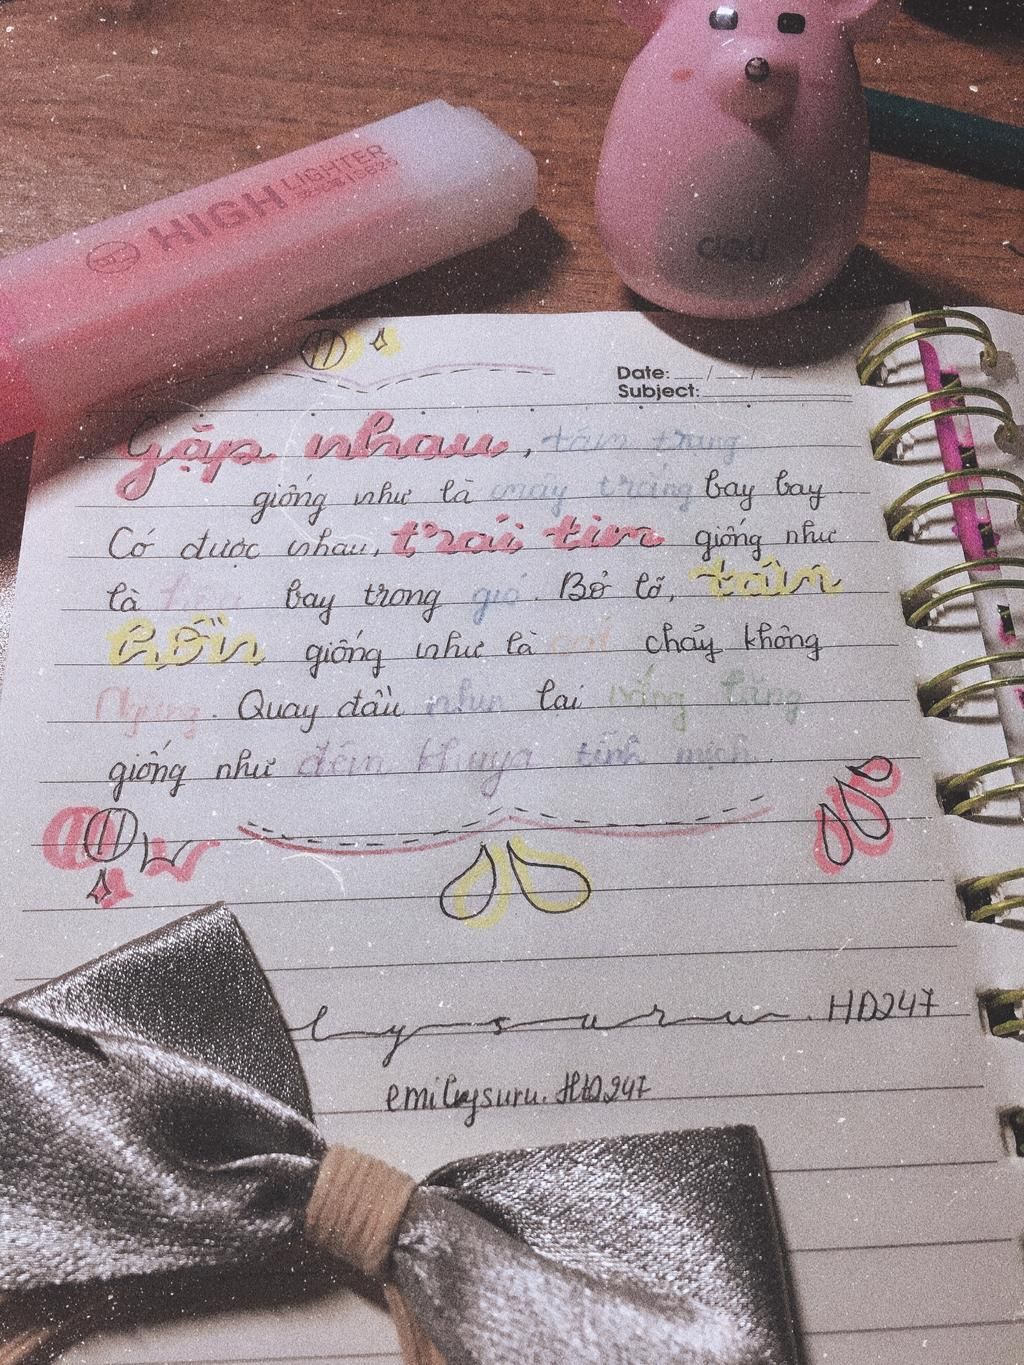 HIGH LIGHTER
deli
Date: __/__/__
Subject:
Gặp nhau, tâm trạng
giống như là mây trắng bay bay
Có được nhau, trái tim giống như
là bay trong gió. Bỏ lỡ, tâm
hồn giống như là cát chảy không
ngừng. Quay đầu nhìn lại vắng lặng
giống như đêm khuya tĩnh mịch.
lysuru. HD247
emilysuru. HD247